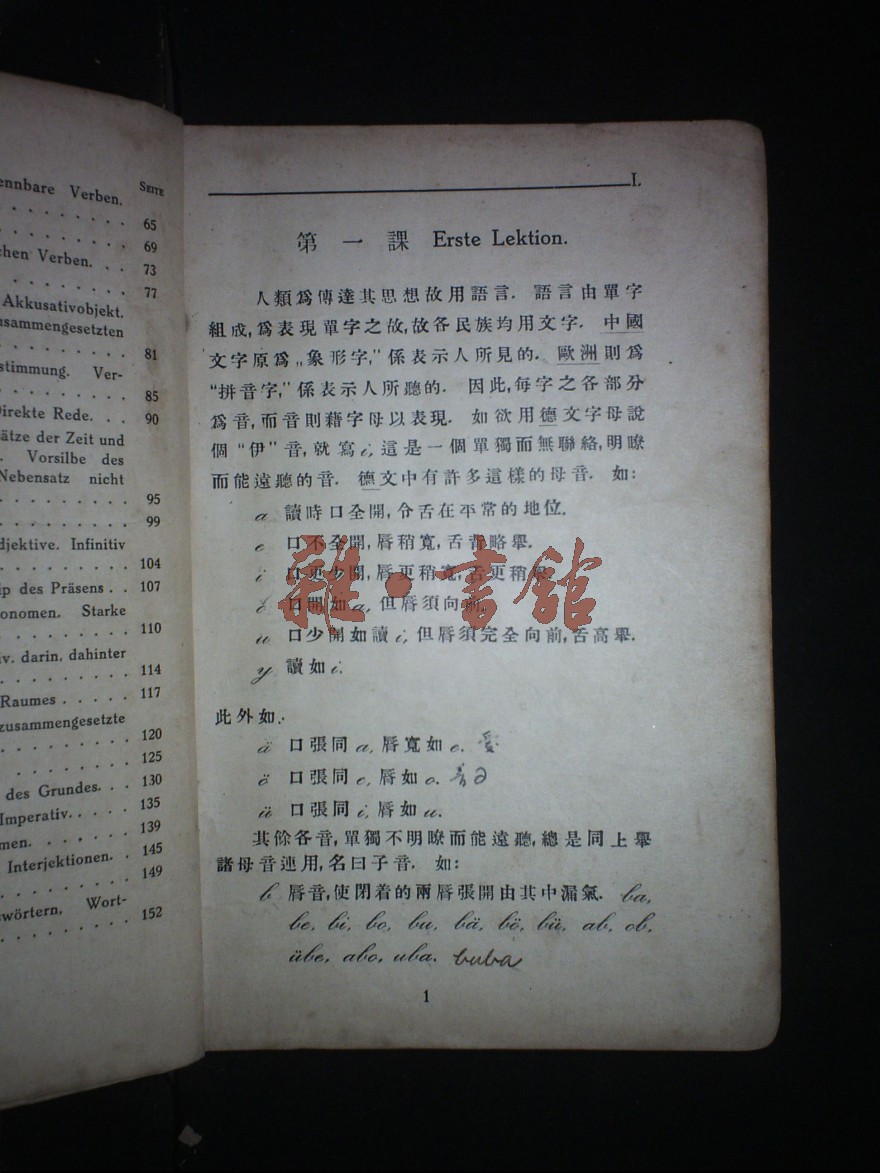 ennbare Verben. SEITE
65
69
chen Verben. 73
77
Akkusativobjekt.
usammengesetzten
81
stimmung. Ver-
85
Direkte Rede. 90
ätze der Zeit und
Vorsilbe des
Nebensatz nicht
95
99
djektive. Infinitiv
104
ip des Präsens 107
onomen. Starke
110
iv. darin, dahinter
114
Raumes 117
zusammengesetzte
120
125
des Grundes. 130
Imperativ. 135
men. 139
Interjektionen. 145
149
swörtern, Wort-
152
I.
第一課 Erste Lektion.
人類爲傳達其思想故用語言. 語言由單字
組成,爲表現單字之故,故各民族均用文字. 中國
文字原爲„象形字,” 係表示人所見的. 歐洲則爲
“拼音字,” 係表示人所聽的. 因此,每字之各部分
爲音,而音則藉字母以表現. 如欲用德文字母說
個 “伊” 音,就寫 i, 這是一個單獨而無聯絡,明瞭
而能遠聽的音. 德文中有許多這樣的母音. 如:
a 讀時口全開,令舌在平常的地位.
e 口不全開,唇稍寬,舌背略舉.
i 口更少開,唇更稍寬,舌更稍舉.
o 口開如 a, 但唇須向前.
u 口少開如讀 i, 但唇須完全向前,舌高舉.
y 讀如 i.
此外如.
ä 口張同 a, 唇寬如 e.
ö 口張同 e, 唇如 o.
ü 口張同 i, 唇如 u.
其餘各音,單獨不明瞭而能遠聽,總是同上舉
諸母音連用,名曰子音. 如:
b 唇音,使閉着的兩唇張開由其中漏氣. ba,
be, bi, bo, bu, bä, bö, bü, ab, ob,
übe, abo, uba. buba
1
雜·書館